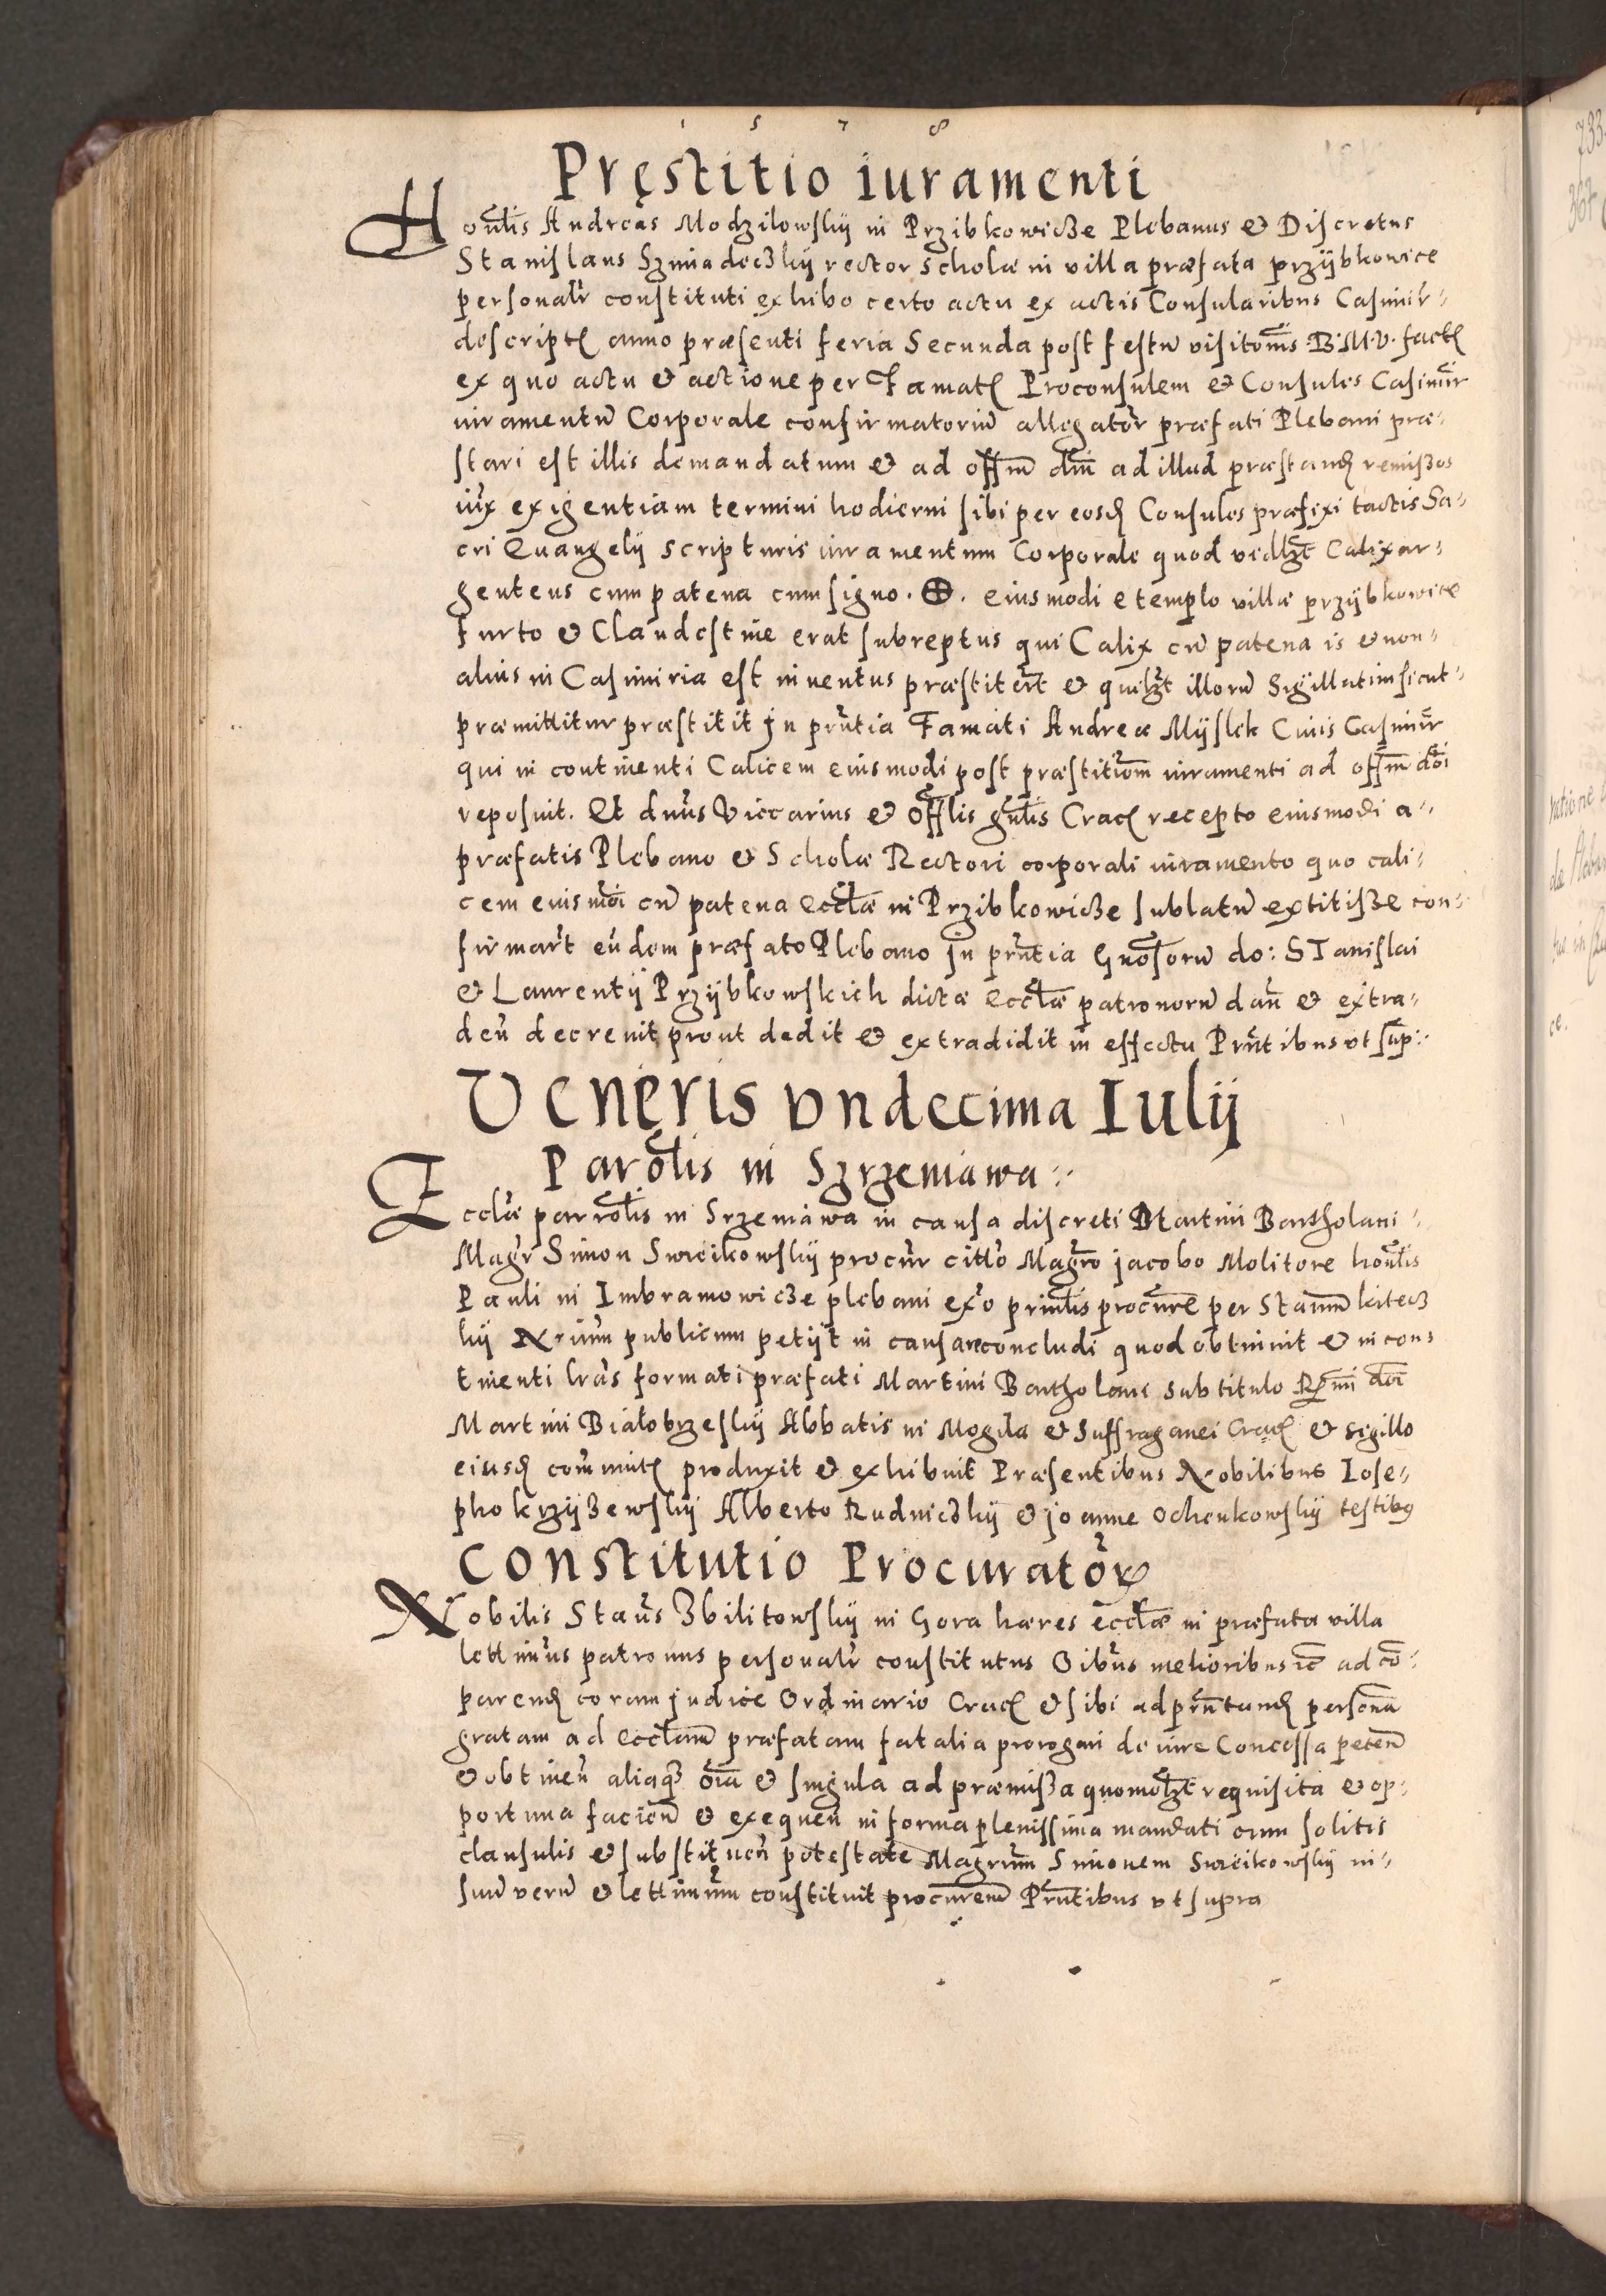 1 5 7 8
Pręstitio iuramenti
Honũlis Andreas Modzilowskij in Przibkowicze Plebanus et Discretus
Stanislaus Szmiadeczkij rector scholæ in villa præfata przijbkowice
personalr constituti exhibo certo actu ex actis Consularibus Casimir-
descript anno præsenti feria Secunda post festũ visitõnis B.M.V. fact
ex quo actu et actione per Famat Proconsulem et Consules Casimir
iuramentũ Corporale confirmatoriũ allegator præfati Plebani præ-
stari est illis demandatum et ad offm dni ad illud præstand remissos
iux exigentiam termini hodierni sibi per eosd Consules præfixi tactis Sa-
cri Euangelij scripturis iuramentum Corporale quod vedlzt Calix ar-
genteus cum patena cum signo . ⊕ . eiusmodi e templo villæ przijbkowice
furto et Clandestine erat subreptus qui Calix cũ patena is et non-
alius in Casimiria est inuentus præstitert et quilzt illorũ Sigillatim sicut-
præmittitur præstitit Jn prñtia Famati Andreæ Mijslek Ciuis Casimir
qui in continenti Calicem eiusmodi post præstitiom iuramenti ad offm dni
reposuit. Et dnus Viccarius et Offlis gnlis Crac recepto eiusmodi a-
præfatis Plebano et Scholæ Rectori corporali iuramento quo cali-
cem eiusmoi cũ patena ecclæ in Przibkowicze sublatũ extitisse con-
firmart eũdem præfato Plebano Jn prntia Gnosorũ do: STanislai
et Laurentij Przijbkowskich dictæ ecclæ patronorũ dañ et extra-
deñ decreuit prout dedit et extradidit in effectu Prñtibus vt sup:
Veneris vndecima Iulij
Parolis in Szrzeniawa:
Ecclæ parrolis in Srzeniawa in causa discreti Martini Bartholani-
Magr Simon Swieikowskij procur citto Magro Jacobo Molitore honlis
Pauli in Imbramowicze plebani exo prinlis procure per Stanum kitecz
kij Nrium publicum petijt in causa reconcludi quod obtinuit et in con-
tinenti lras formati præfati Martini Bartholani sub titulo Rmi dni
Martini Białobrzeskij Abbatis in Mogiła et Suffraganei Crac et sigillo
eiusd communit produxit et exhibuit Præsentibus Nobilibus Iose-
pho krzijzewskij Alberto Rudniczkij et Joanne Ochenkowskij testibus
Constitutio Procurator
Nobilis Staus Zbilitowskij in Gora hæres ecclæ in præfata villa
lettimus patronus personalr constitutus Oibus melioribus etc ad co-
parend coram Judice Ordinario Crac et sibi ad prntand persona
gratam ad ecclam præfatam fatalia prorogari de iure Concessa petend
et obtineñ aliaque oia et singula ad præmissa quomolzt requisita et op-
portuna faciend et exequeñ in forma plenissima mandati cum solitis
clausulis et substituen potestate Magrum Simonem Swieikowskij in-
suũ verũ et lettimum constituit procurem Prntibus vt supra